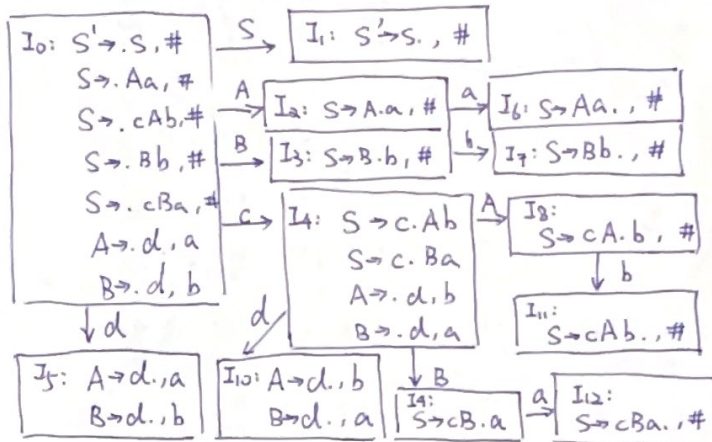 I₀: S'→.S, #
S→.Aa, #
S→.cAb, #
S→.Bb, #
S→.cBa, #
A→.d, a
B→.d, b
S
I₁: S'→S., #
A
I₂: S→A.a, #
a
I₆: S→Aa., #
B
I₃: S→B.b, #
b
I₇: S→Bb., #
c
I₄: S→c.Ab
S→c.Ba
A→.d, b
B→.d, a
A
I₈:
S→cA.b, #
b
I₁₁:
S→cAb., #
d
I₅: A→d., a
B→d., b
d
I₁₀: A→d., b
B→d., a
B
I₉:
S→cB.a
a
I₁₂:
S→cBa., #